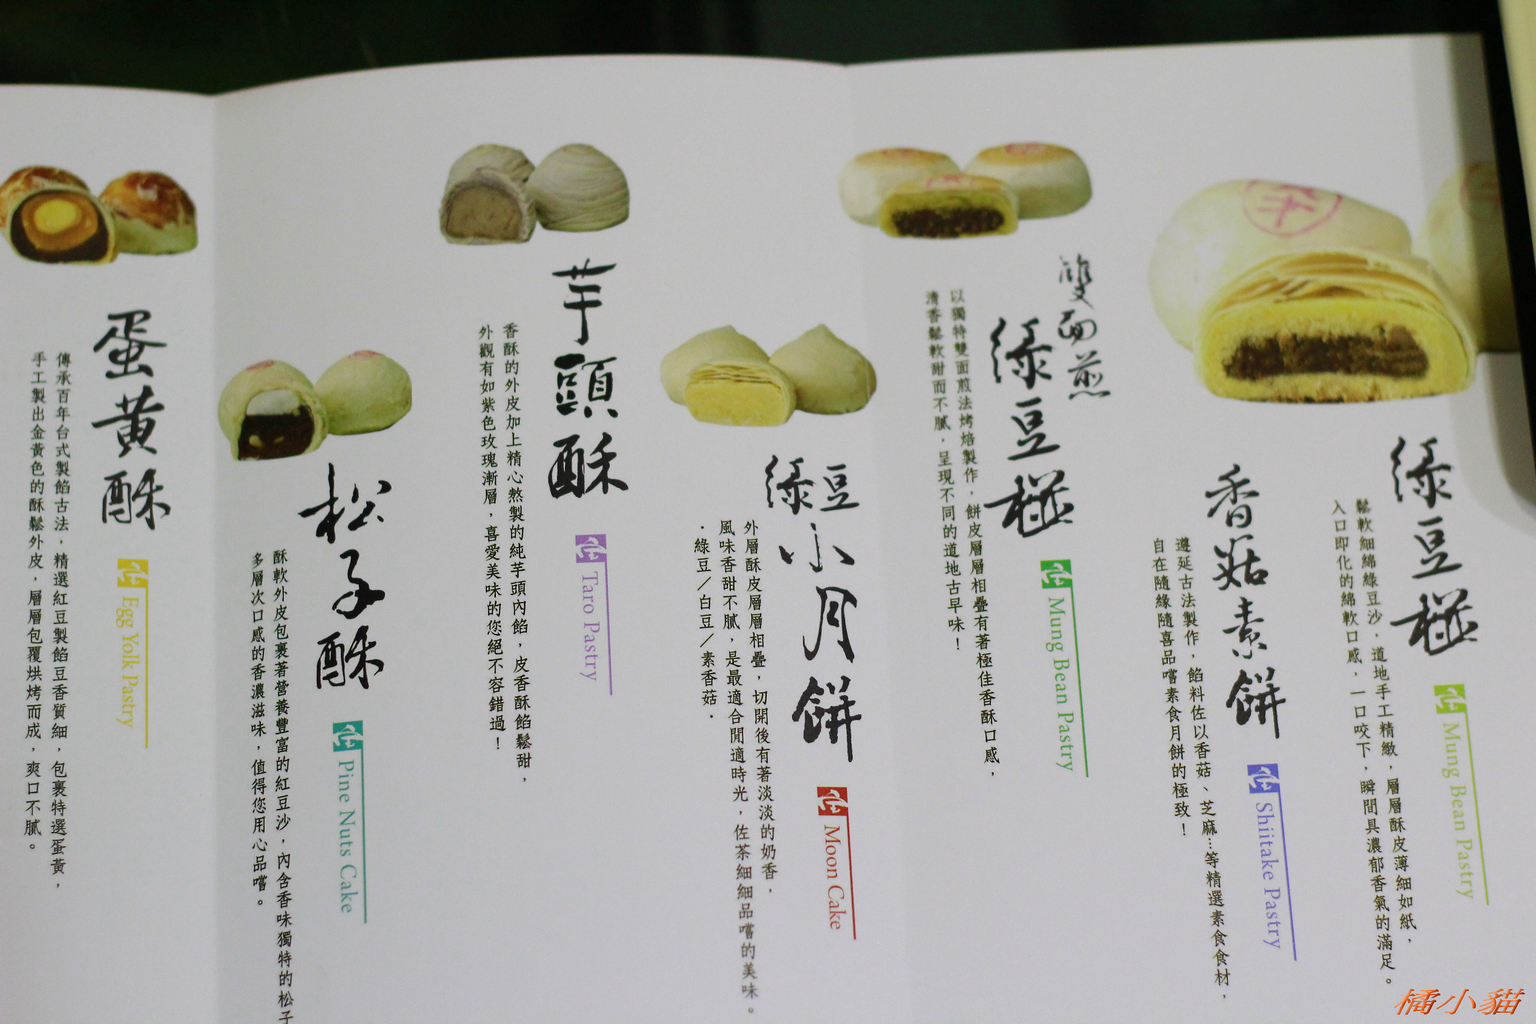 綠豆椪
Mung Bean Pastry
鬆軟細綿綠豆沙，道地手工精緻，層層酥皮薄細如紙，
入口即化的綿軟口感，一口咬下，瞬間具濃郁香氣的滿足。
香菇素餅
Shiitake Pastry
遵延古法製作，餡料佐以香菇、芝麻…等精選素食食材，
自在隨緣隨喜品嚐素食月餅的極致！
雙面煎
綠豆椪
Mung Bean Pastry
以獨特雙面煎法烤焙製作，餅皮層層相疊有著極佳香酥口感，
清香鬆軟甜而不膩，呈現不同的道地古早味！
綠豆小月餅
Moon Cake
外層酥皮層層相疊，切開後有著淡淡的奶香，
風味香甜不膩，是最適合閒適時光，佐茶細細品嚐的美味。
．綠豆／白豆／素香菇．
芋頭酥
Taro Pastry
香酥的外皮加上精心熬製的純芋頭內餡，皮香酥餡鬆甜，
外觀有如紫色玫瑰漸層，喜愛美味的您絕不容錯過！
松子酥
Pine Nuts Cake
酥軟外皮包裹著營養豐富的紅豆沙，內含香味獨特的松子
多層次口感的香濃滋味，值得您用心品嚐。
蛋黃酥
Egg Yolk Pastry
傳承百年台式製餡古法，精選紅豆製餡豆香質細，包裹特選蛋黃，
手工製出金黃色的酥鬆外皮，層層包覆烘烤而成，爽口不膩。
橘小貓